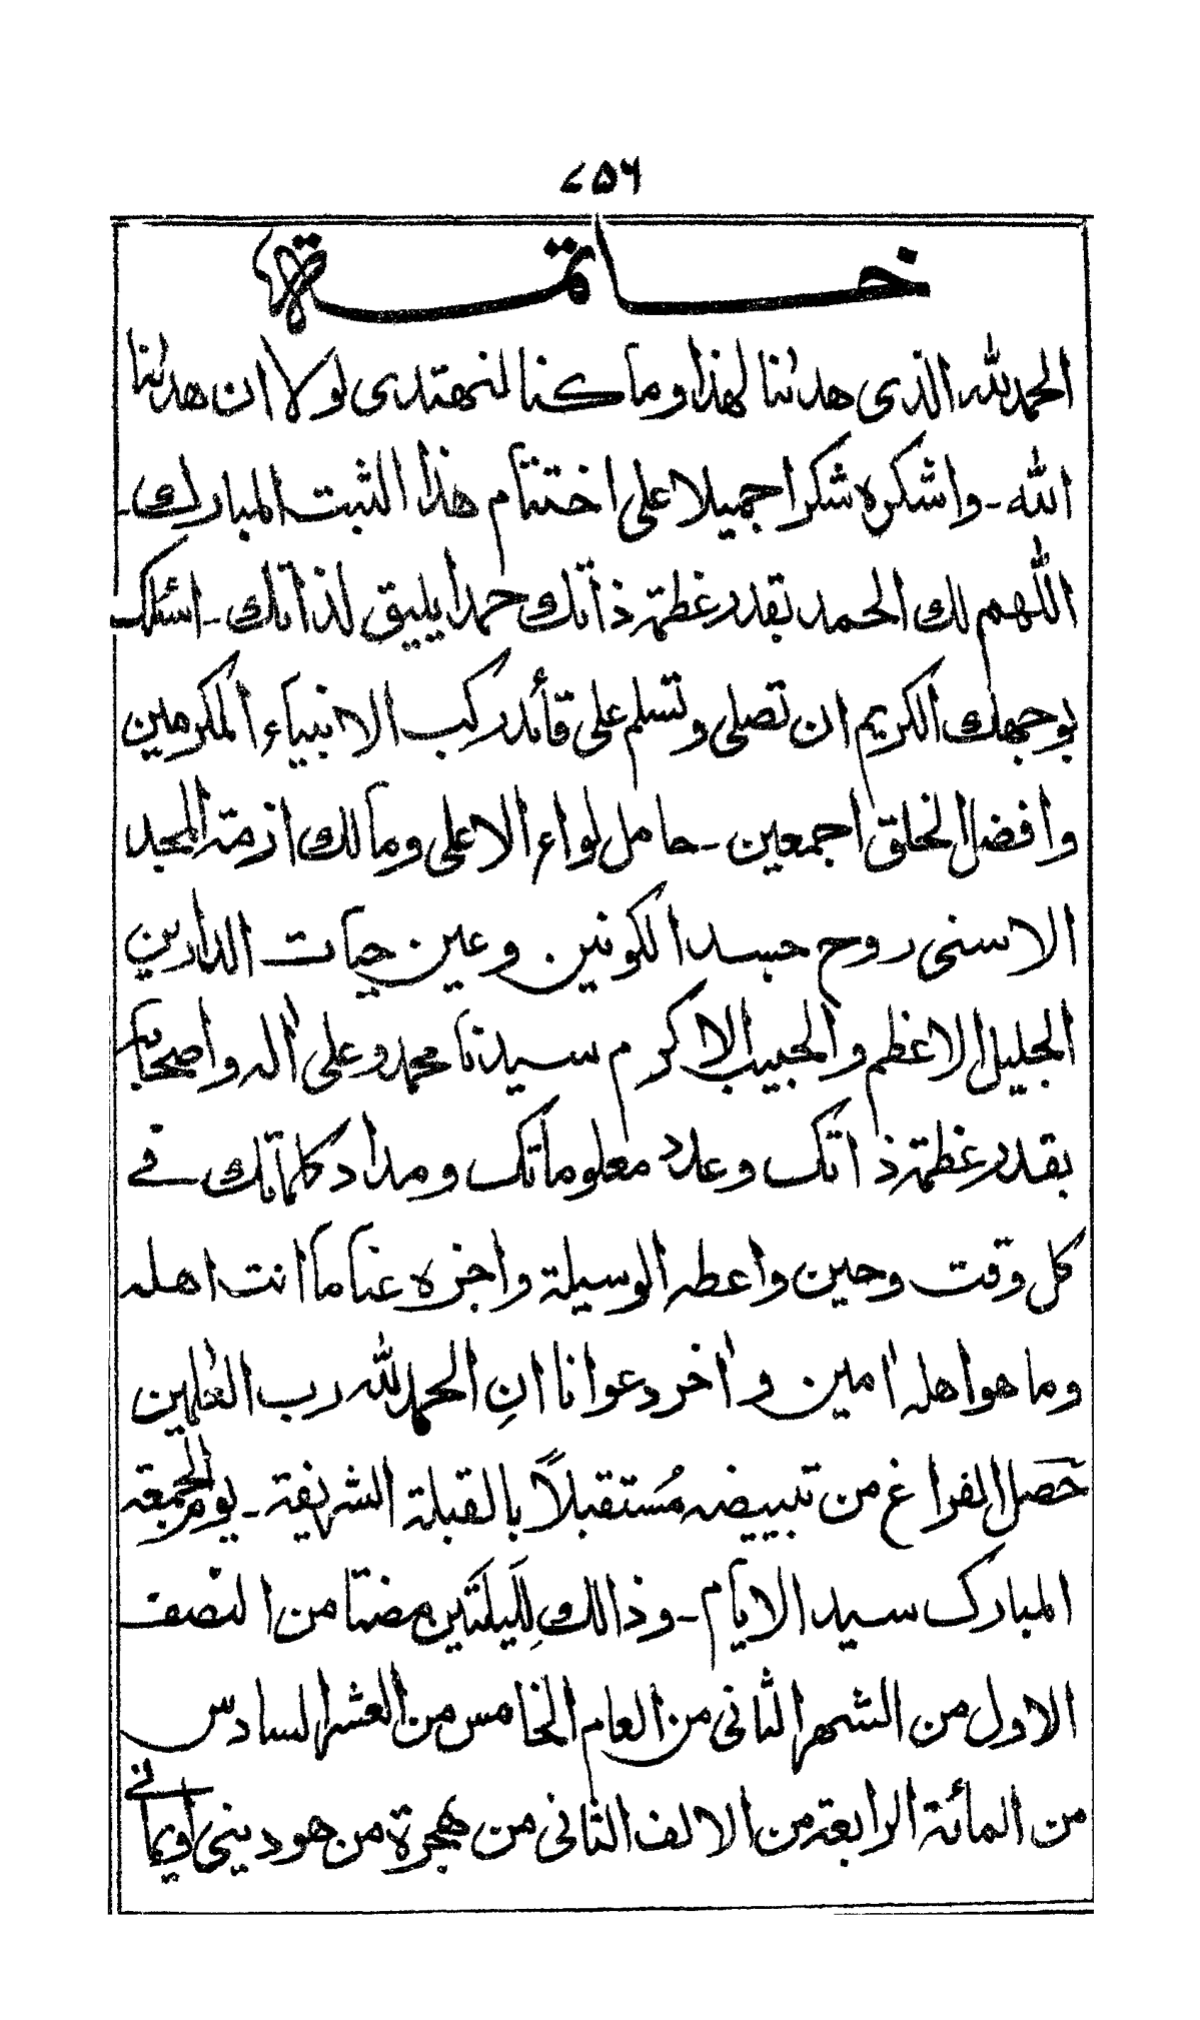 ۷۵۶
خاتمة
الحمد لله الذى هدٰىنا لهذا وما كنا لنهتدى لولا ان هدٰىنا
الله ـ واشكره شكرا جميلا على اختتام هذا الثبت المبارك ـ
اللهم لك الحمد بقدر عظمة ذاتك حمدا يليق لذاتك ـ اسئلك
بوجهك الكريم ان تصلى وتسلم على قائد ركب الانبياء المكرمين
وافضل الخلق اجمعين ـ حامل لواء الاعلى ومالك ازمة المجد
الاسنى روح جسد الكونين وعين حيات الدارين
الجليل الاعظم والحبيب الاكرم سيدنا محمد وعلى اٰله واصحابه
بقدر عظمة ذاتك وعدد معلوماتك ومداد كلماتك فى
كل وقت وحين واعطه الوسيلة واجزه عنا ما انت اهله
وما هو اهله اٰمين واٰخر دعوانا انِ الحمد لله رب العٰلمين
حصل الفراغ من تبييضه مُستقبلاً بالقبلة الشريفة ـ يوم الجمعة
المبارك سيد الايام ـ وذالك لِلَيلتَين مضتا من النصف
الاول من الشهر الثانى من العام الخامس من العشر السادس
من المائة الرابعة من الالف الثانى من هجرة من هو دينى وايمانى